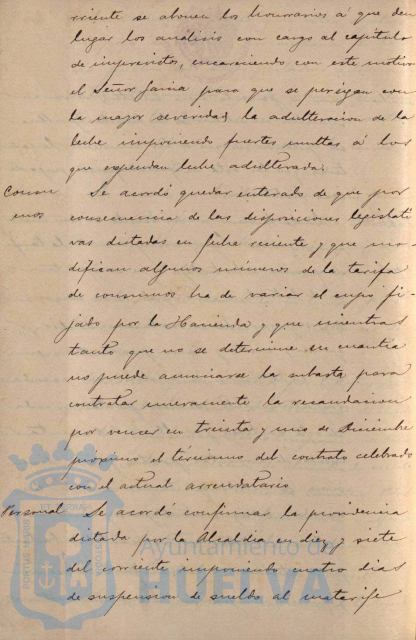 rriente se abonen los honorarios á que den
lugar los análisis con cargo al capítulo
de imprevistos, encareciendo con este motivo
el Señor García para que se persigan con
la mayor severidad la adulteracion de la
leche imponiendo fuertes multas á los
que expendan leche adulterada.
Consu
mos
Se acordó quedar enterado de que por
consecuencia de las disposiciones legislati
vas dictadas en fecha reciente y que mo-
difican algunos números de la tarifa
de consumos ha de variar el cupo fi-
jado por la Hacienda y que mientras
tanto que no se determine su cuantia
no puede anunciarse la subasta para
contratar nuevamente la recaudacion
por vencer en treinta y uno de Diciembre
próximo el término del contrato celebrado
con el actual arrendatario
Personal
Se acordó confirmar la providencia
dictada por la Alcaldia en diez y siete
del corriente imponiendo cuatro dias
de suspension de sueldo al matarife
Ayuntamiento de
HUELVA